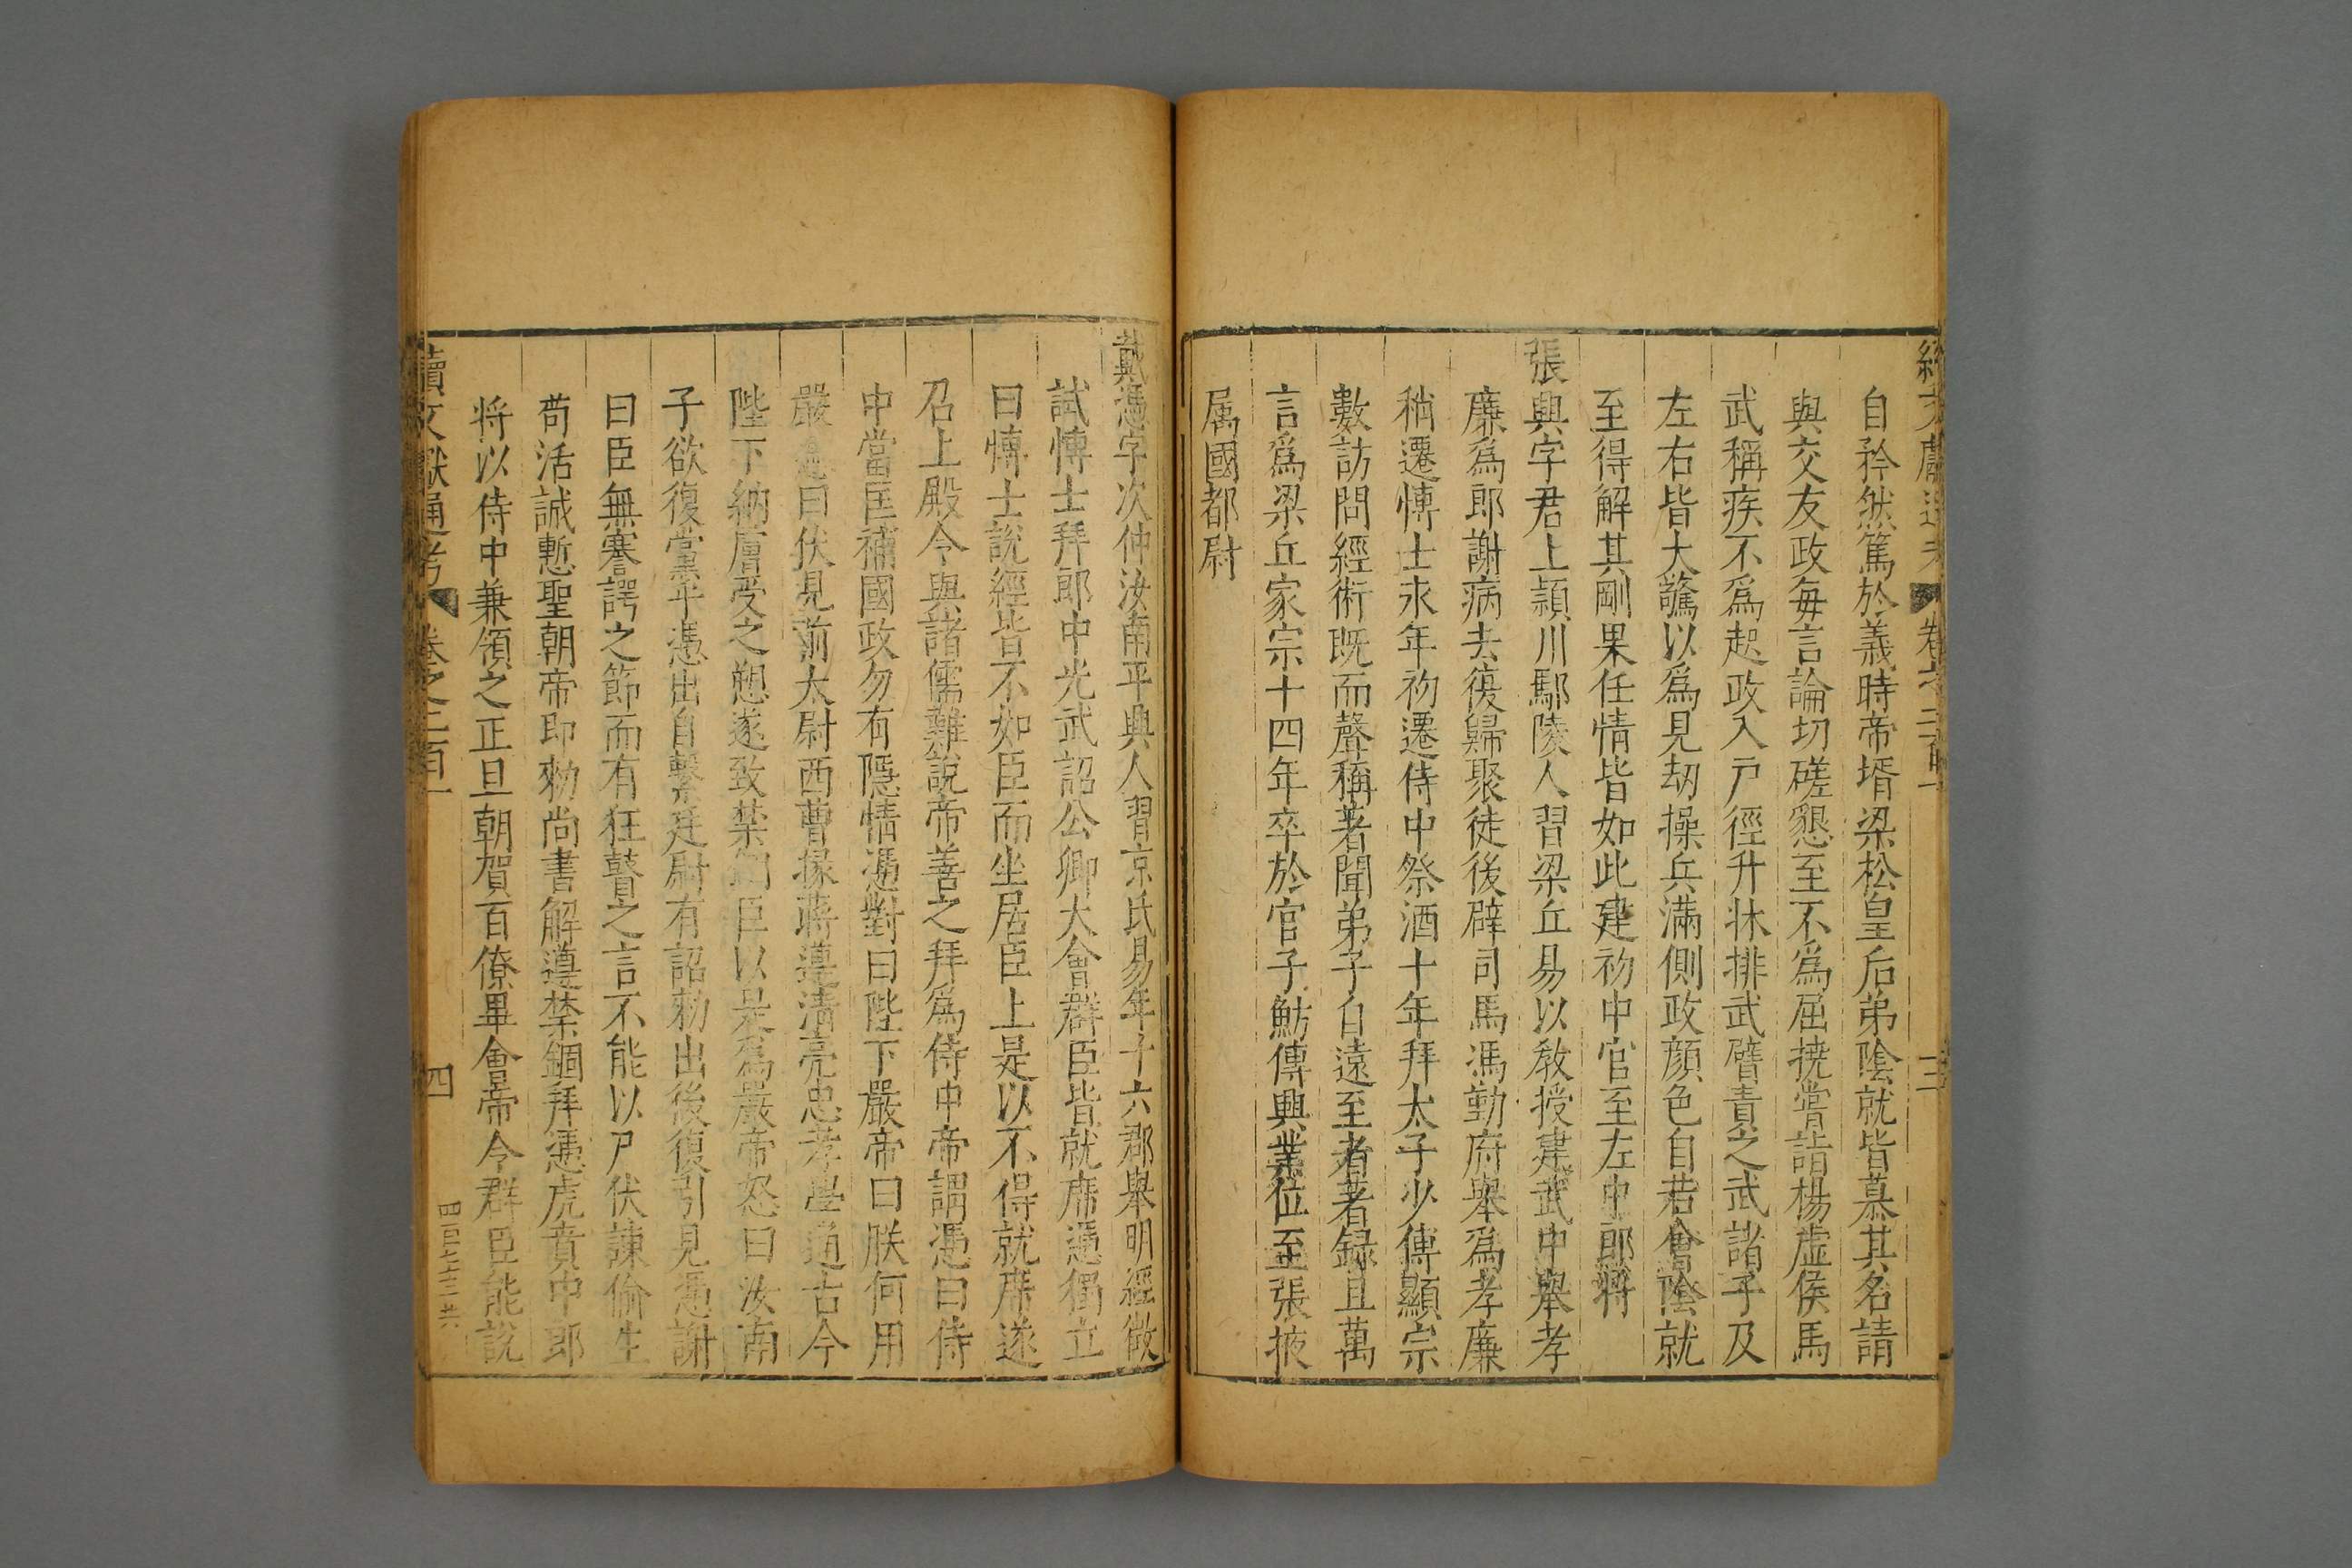 續文獻通考 卷之二百一 三
自矜然篤於義時帝壻梁松皇后弟陰就皆慕其名請
與交友政每言論切磋懇至不爲屈撓嘗詣楊虛侯馬
武稱疾不爲起政入戶徑升牀排武臂責之武諸子及
左右皆大驚以爲見刼操兵滿側政顔色自若會陰就
至得解其剛果任情皆如此建初中官至左中郎將
張興字君上頴川鄢陵人習梁丘易以敎授建武中舉孝
廉爲郎謝病去復歸聚徒後辟司馬馮勤府舉爲孝廉
稍遷博士永年初遷侍中祭酒十年拜太子少傅顯宗
數訪問經術既而聲稱著聞弟子自遠至者著録且萬
言爲梁丘家宗十四年卒於官子魴傳興業位至張掖
属國都尉
戴憑字次仲汝南平輿人習京氏易年十六郡舉明經徵
試博士拜郎中光武詔公卿大會群臣皆就席憑獨立
曰博士說經皆不如臣而坐居臣上是以不得就席遂
召上殿令與諸儒難說帝善之拜爲侍中帝謂憑曰侍
中當匡補國政勿有隱情憑對曰陛下嚴帝曰朕何用
嚴憑曰伏見前太尉西曹掾蔣遵清亮忠孝學通古今
陛下納膚受之愬遂致禁錮臣以是爲嚴帝怒曰汝南
子欲復黨乎憑出自繫廷尉有詔勑出後復引見憑謝
曰臣無謇諤之節而有狂瞽之言不能以尸伏諫偷生
苟活誠慙聖朝帝即勑尚書解遵禁錮拜憑虎賁中郎
将以侍中兼領之正旦朝賀百僚畢會帝令群臣能說
續文獻通考 卷之二百一 四